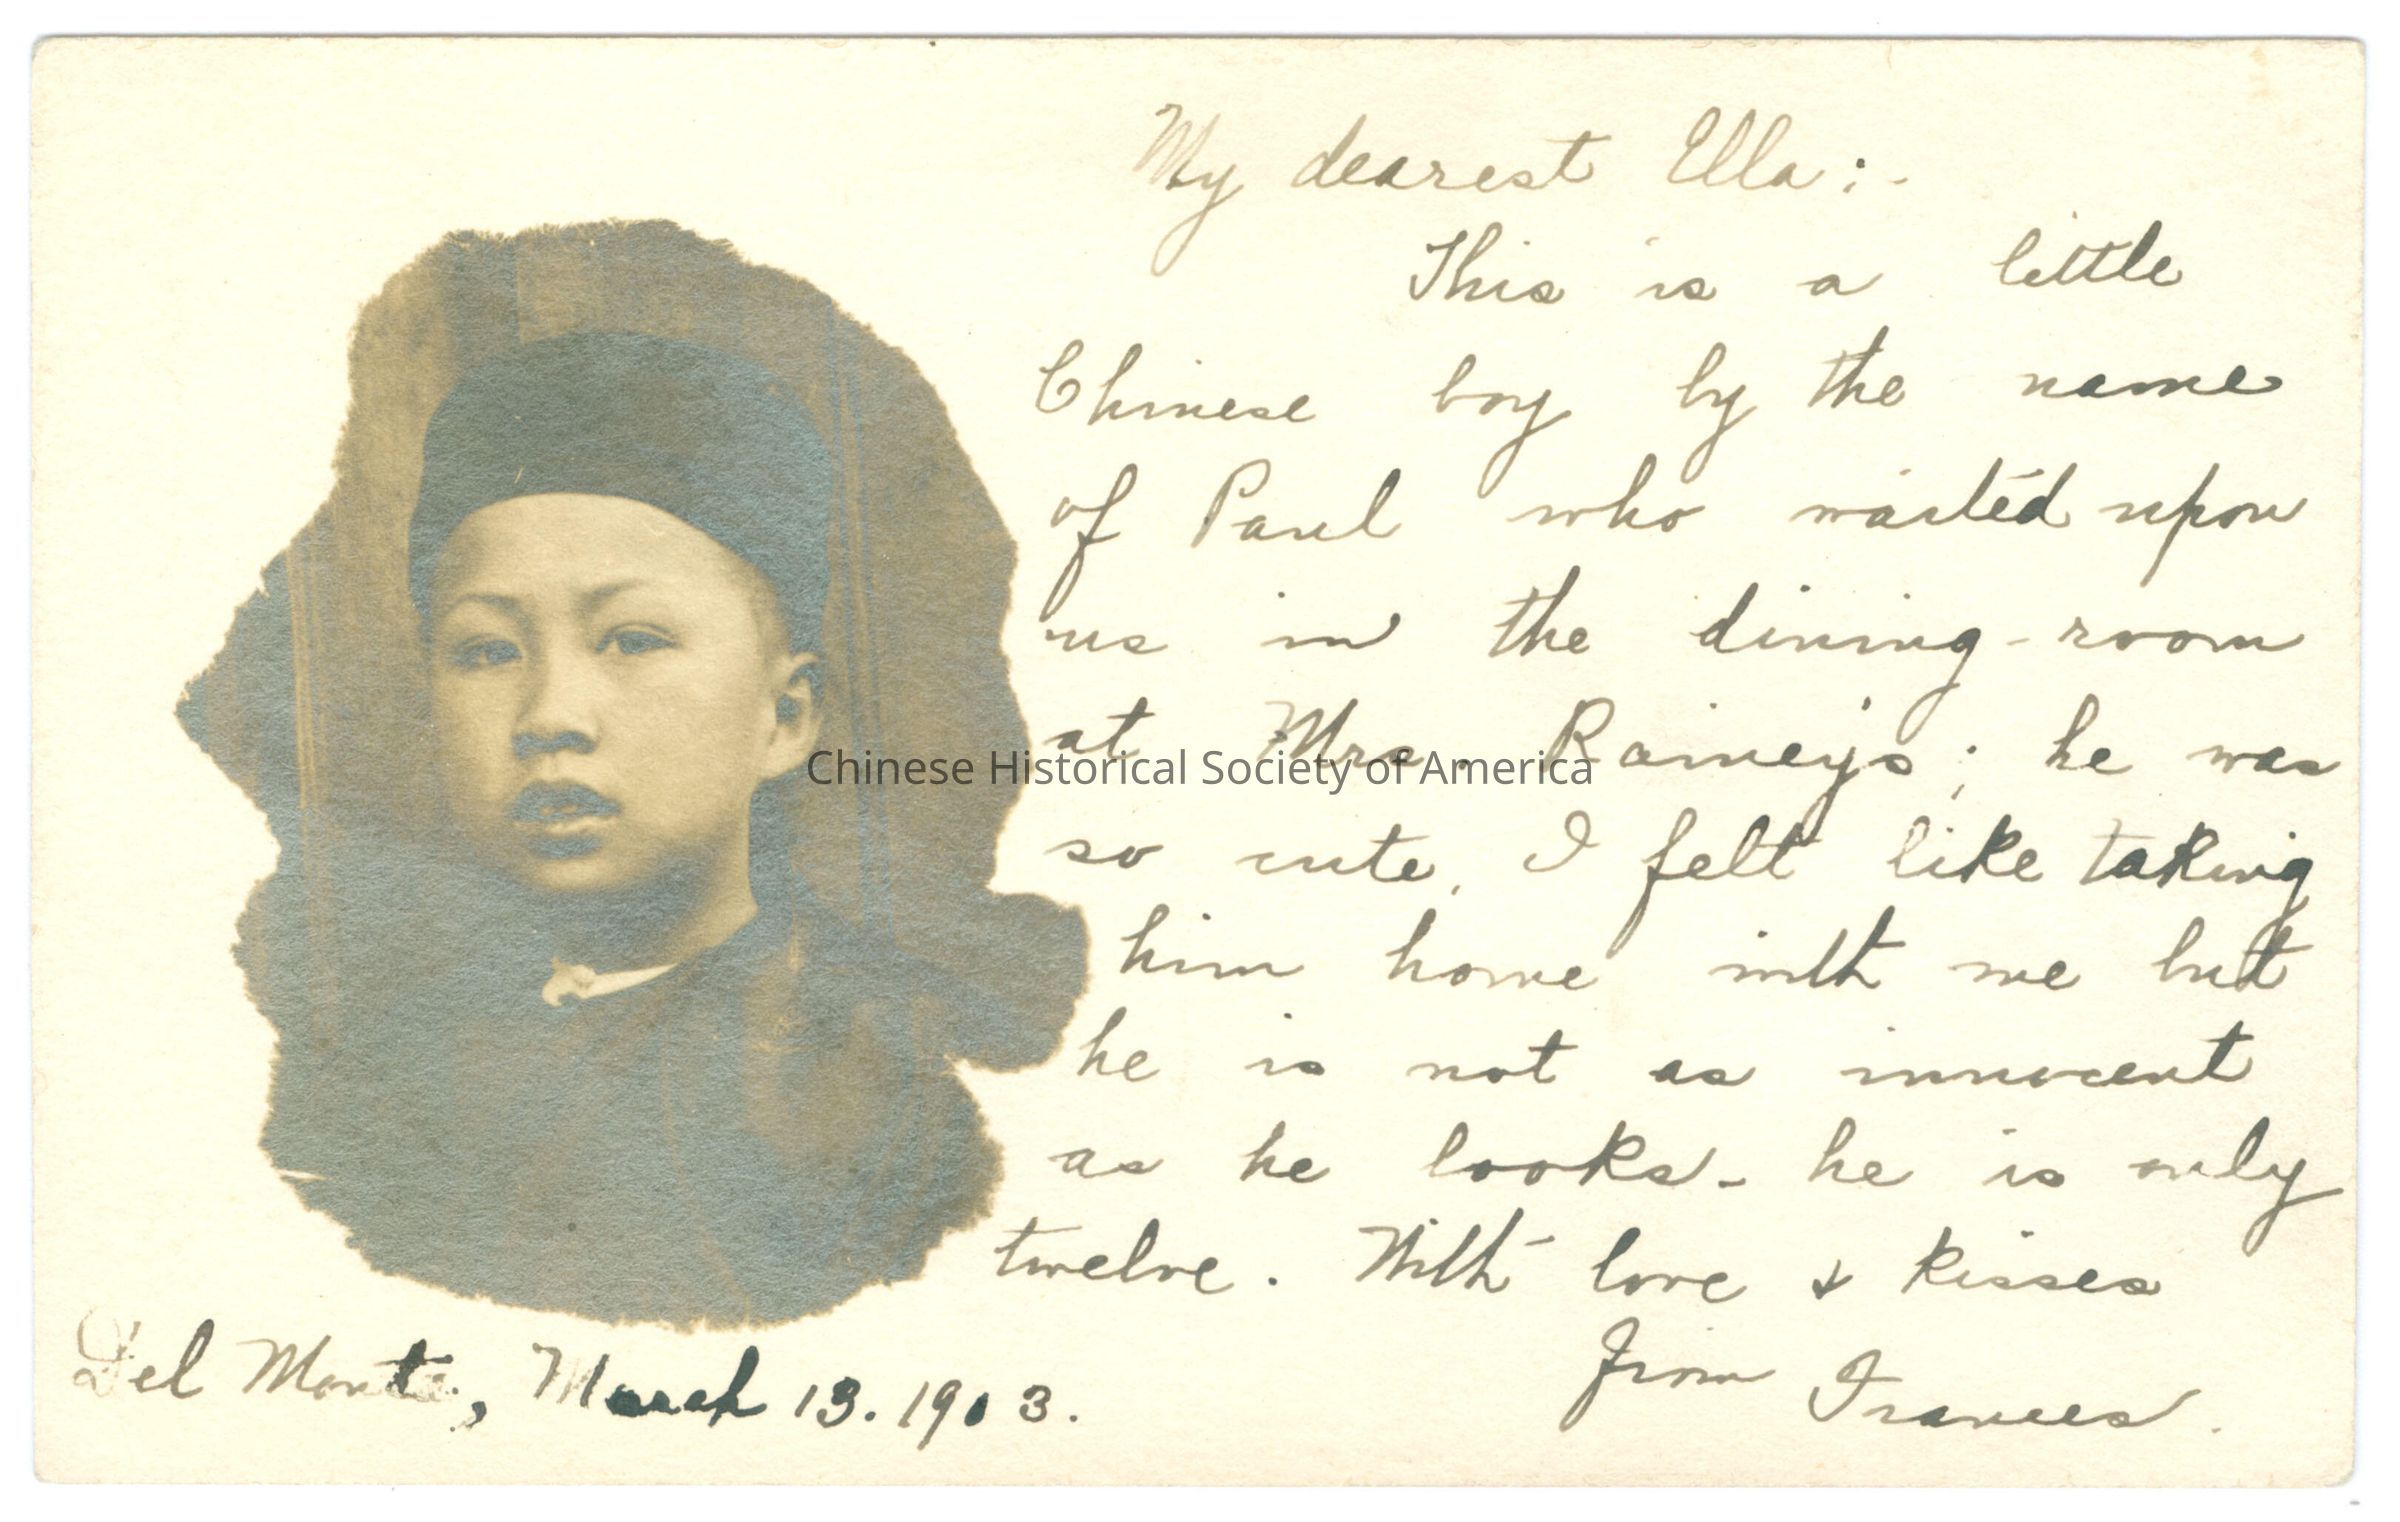 My dearest Ella:-
This is a little
Chinese boy by the name
of Paul who waited upon
us in the dining-room
at Mrs. Rainey's; he was
so cute, I felt like taking
him home with me but
he is not as innocent
as he looks - he is only
twelve. With love & kisses
From Frances.
Del Monte, March 13. 1903.
Chinese Historical Society of America